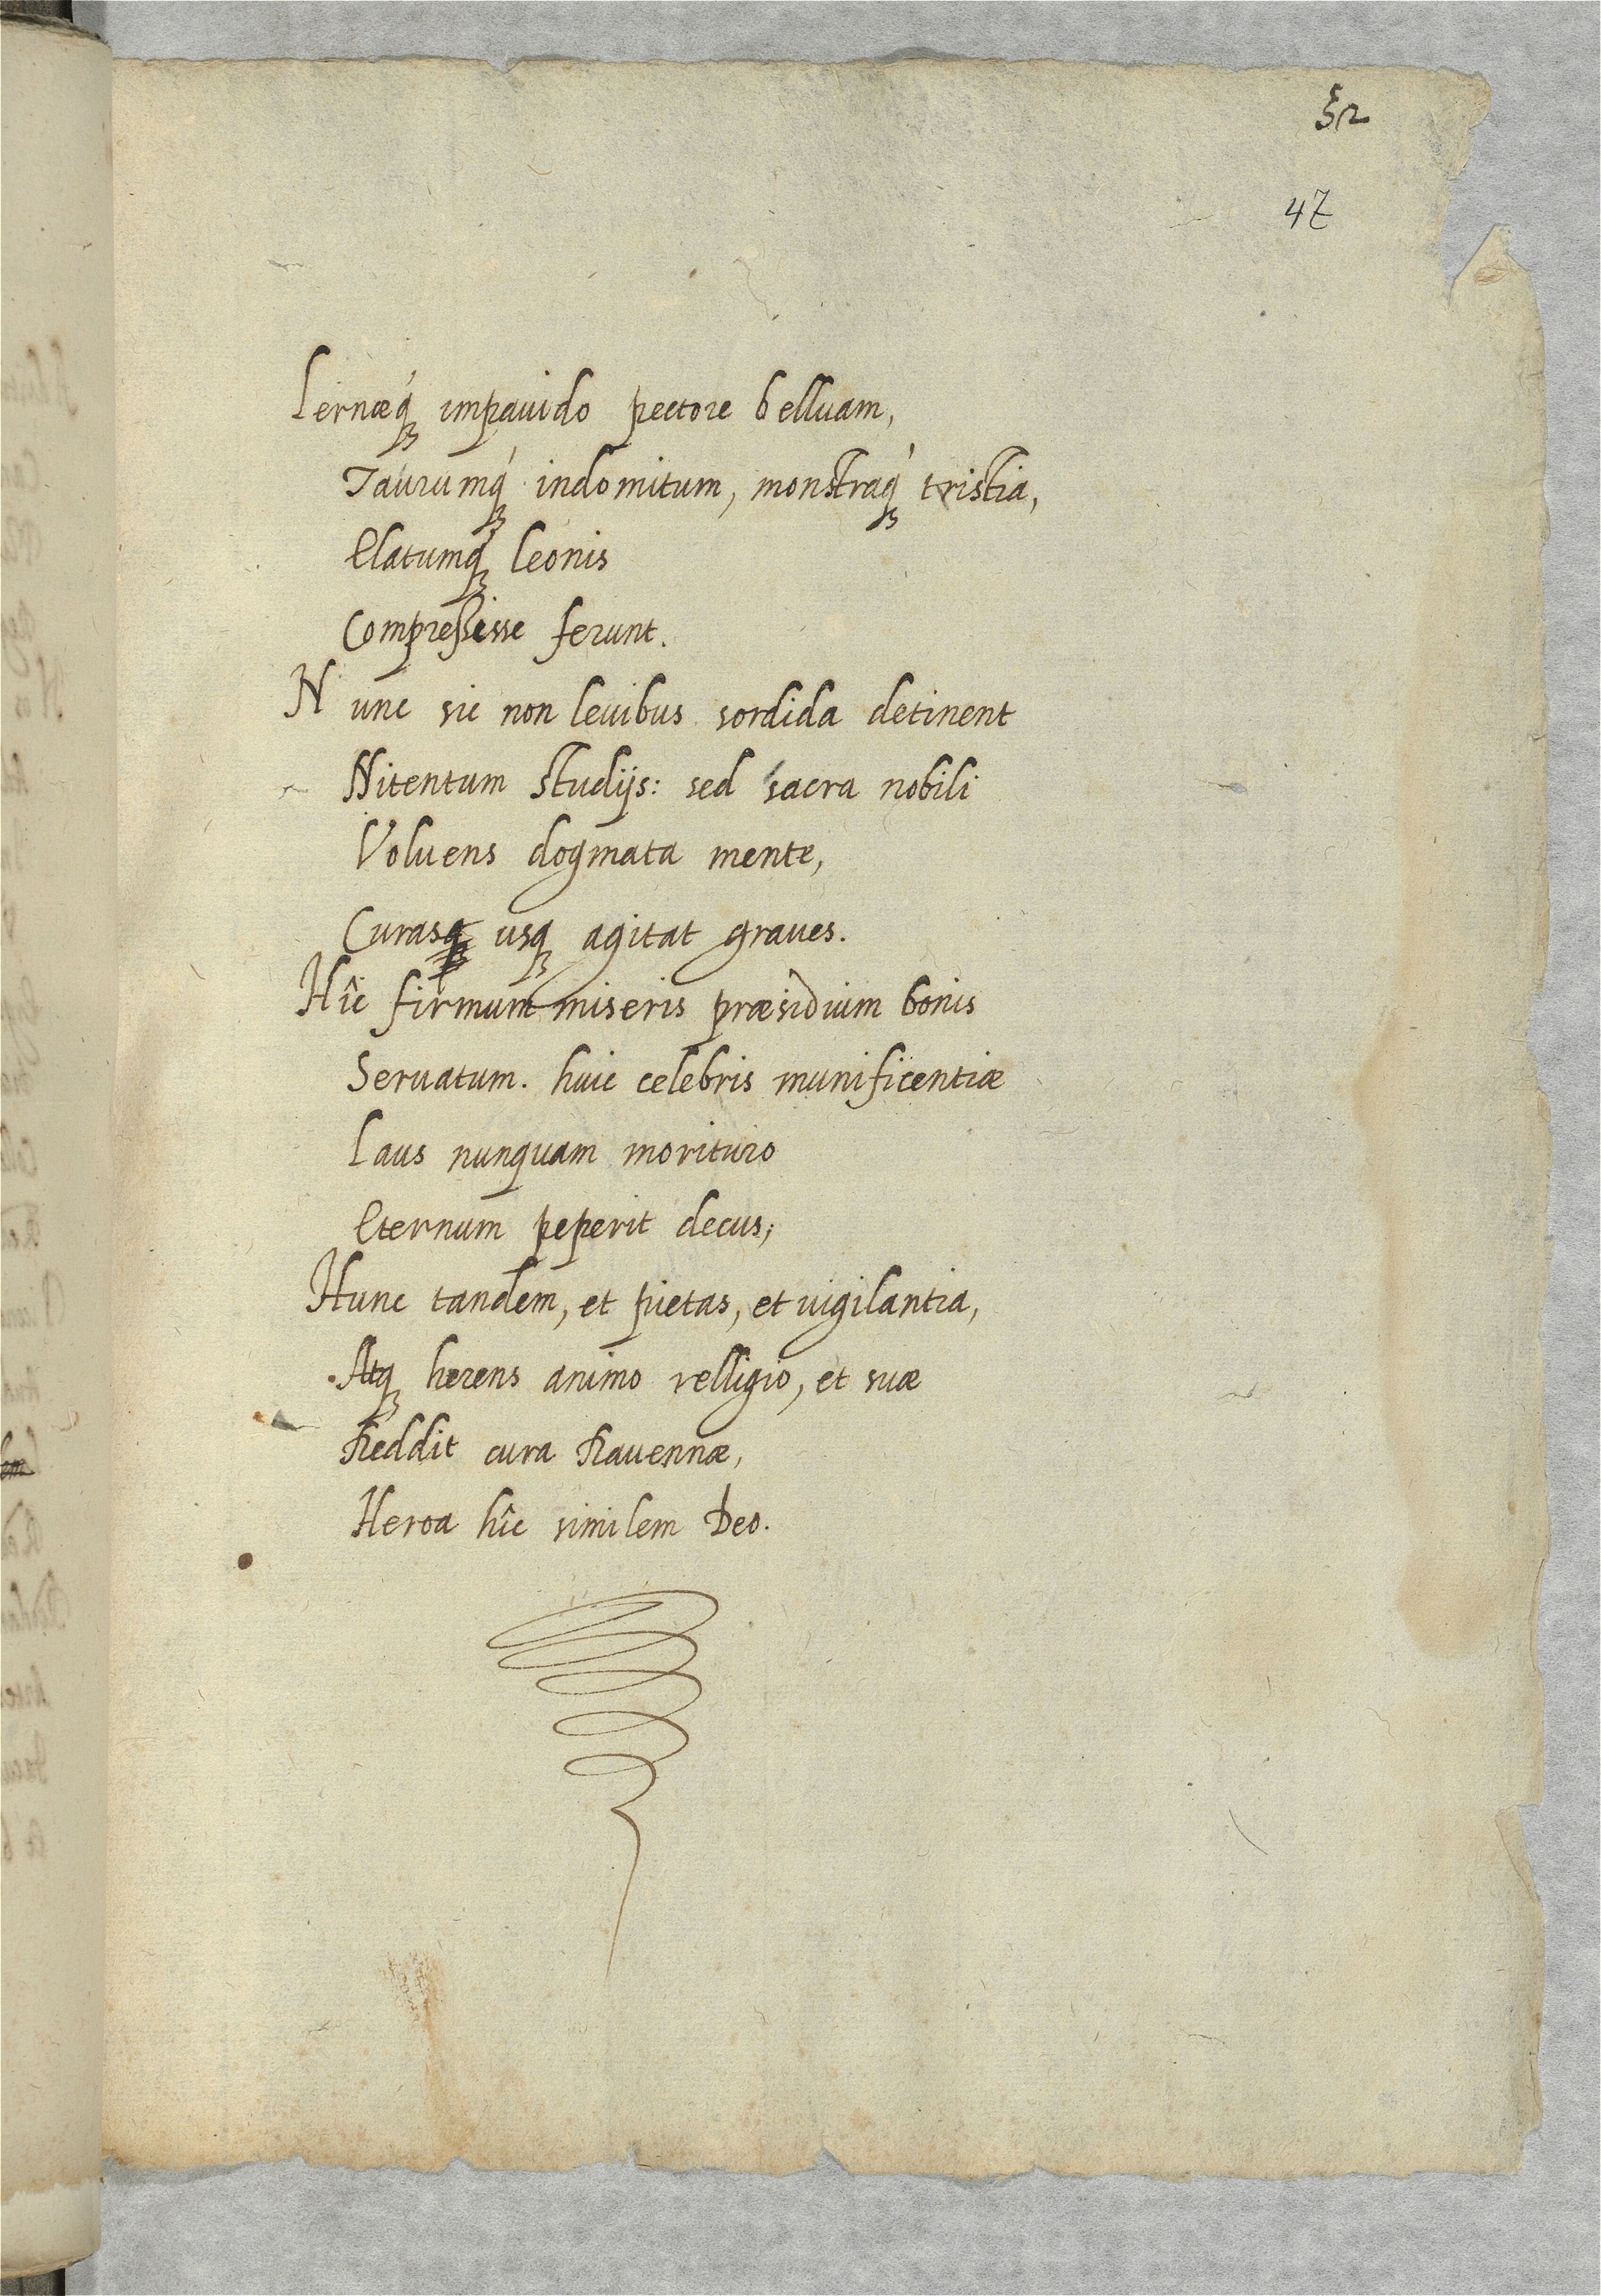 52
47
Lernæq́ꝫ impauido pectore belluam,
Taurumq́ꝫ indomitum, monstraq́ꝫ tristia,
Elatumq́ꝫ leonis
Compreßisse ferunt.
Nunc sic non leuibus sordida detinent
Nitentum studijs: sed sacra nobili
Voluens dogmata mente,
Curasqꝫ usqꝫ agitat graues.
Hîc firmum miseris præsidium bonis
Seruatum. huic celebris munificentiæ
Laus nunquam morituro
Eternum peperit decus;
Hunc tandem, et pietas, et uigilantia,
Atqꝫ herens animo relligio, et suæ
Reddit cura Rauennæ,
Heroa hîc similem Deo.